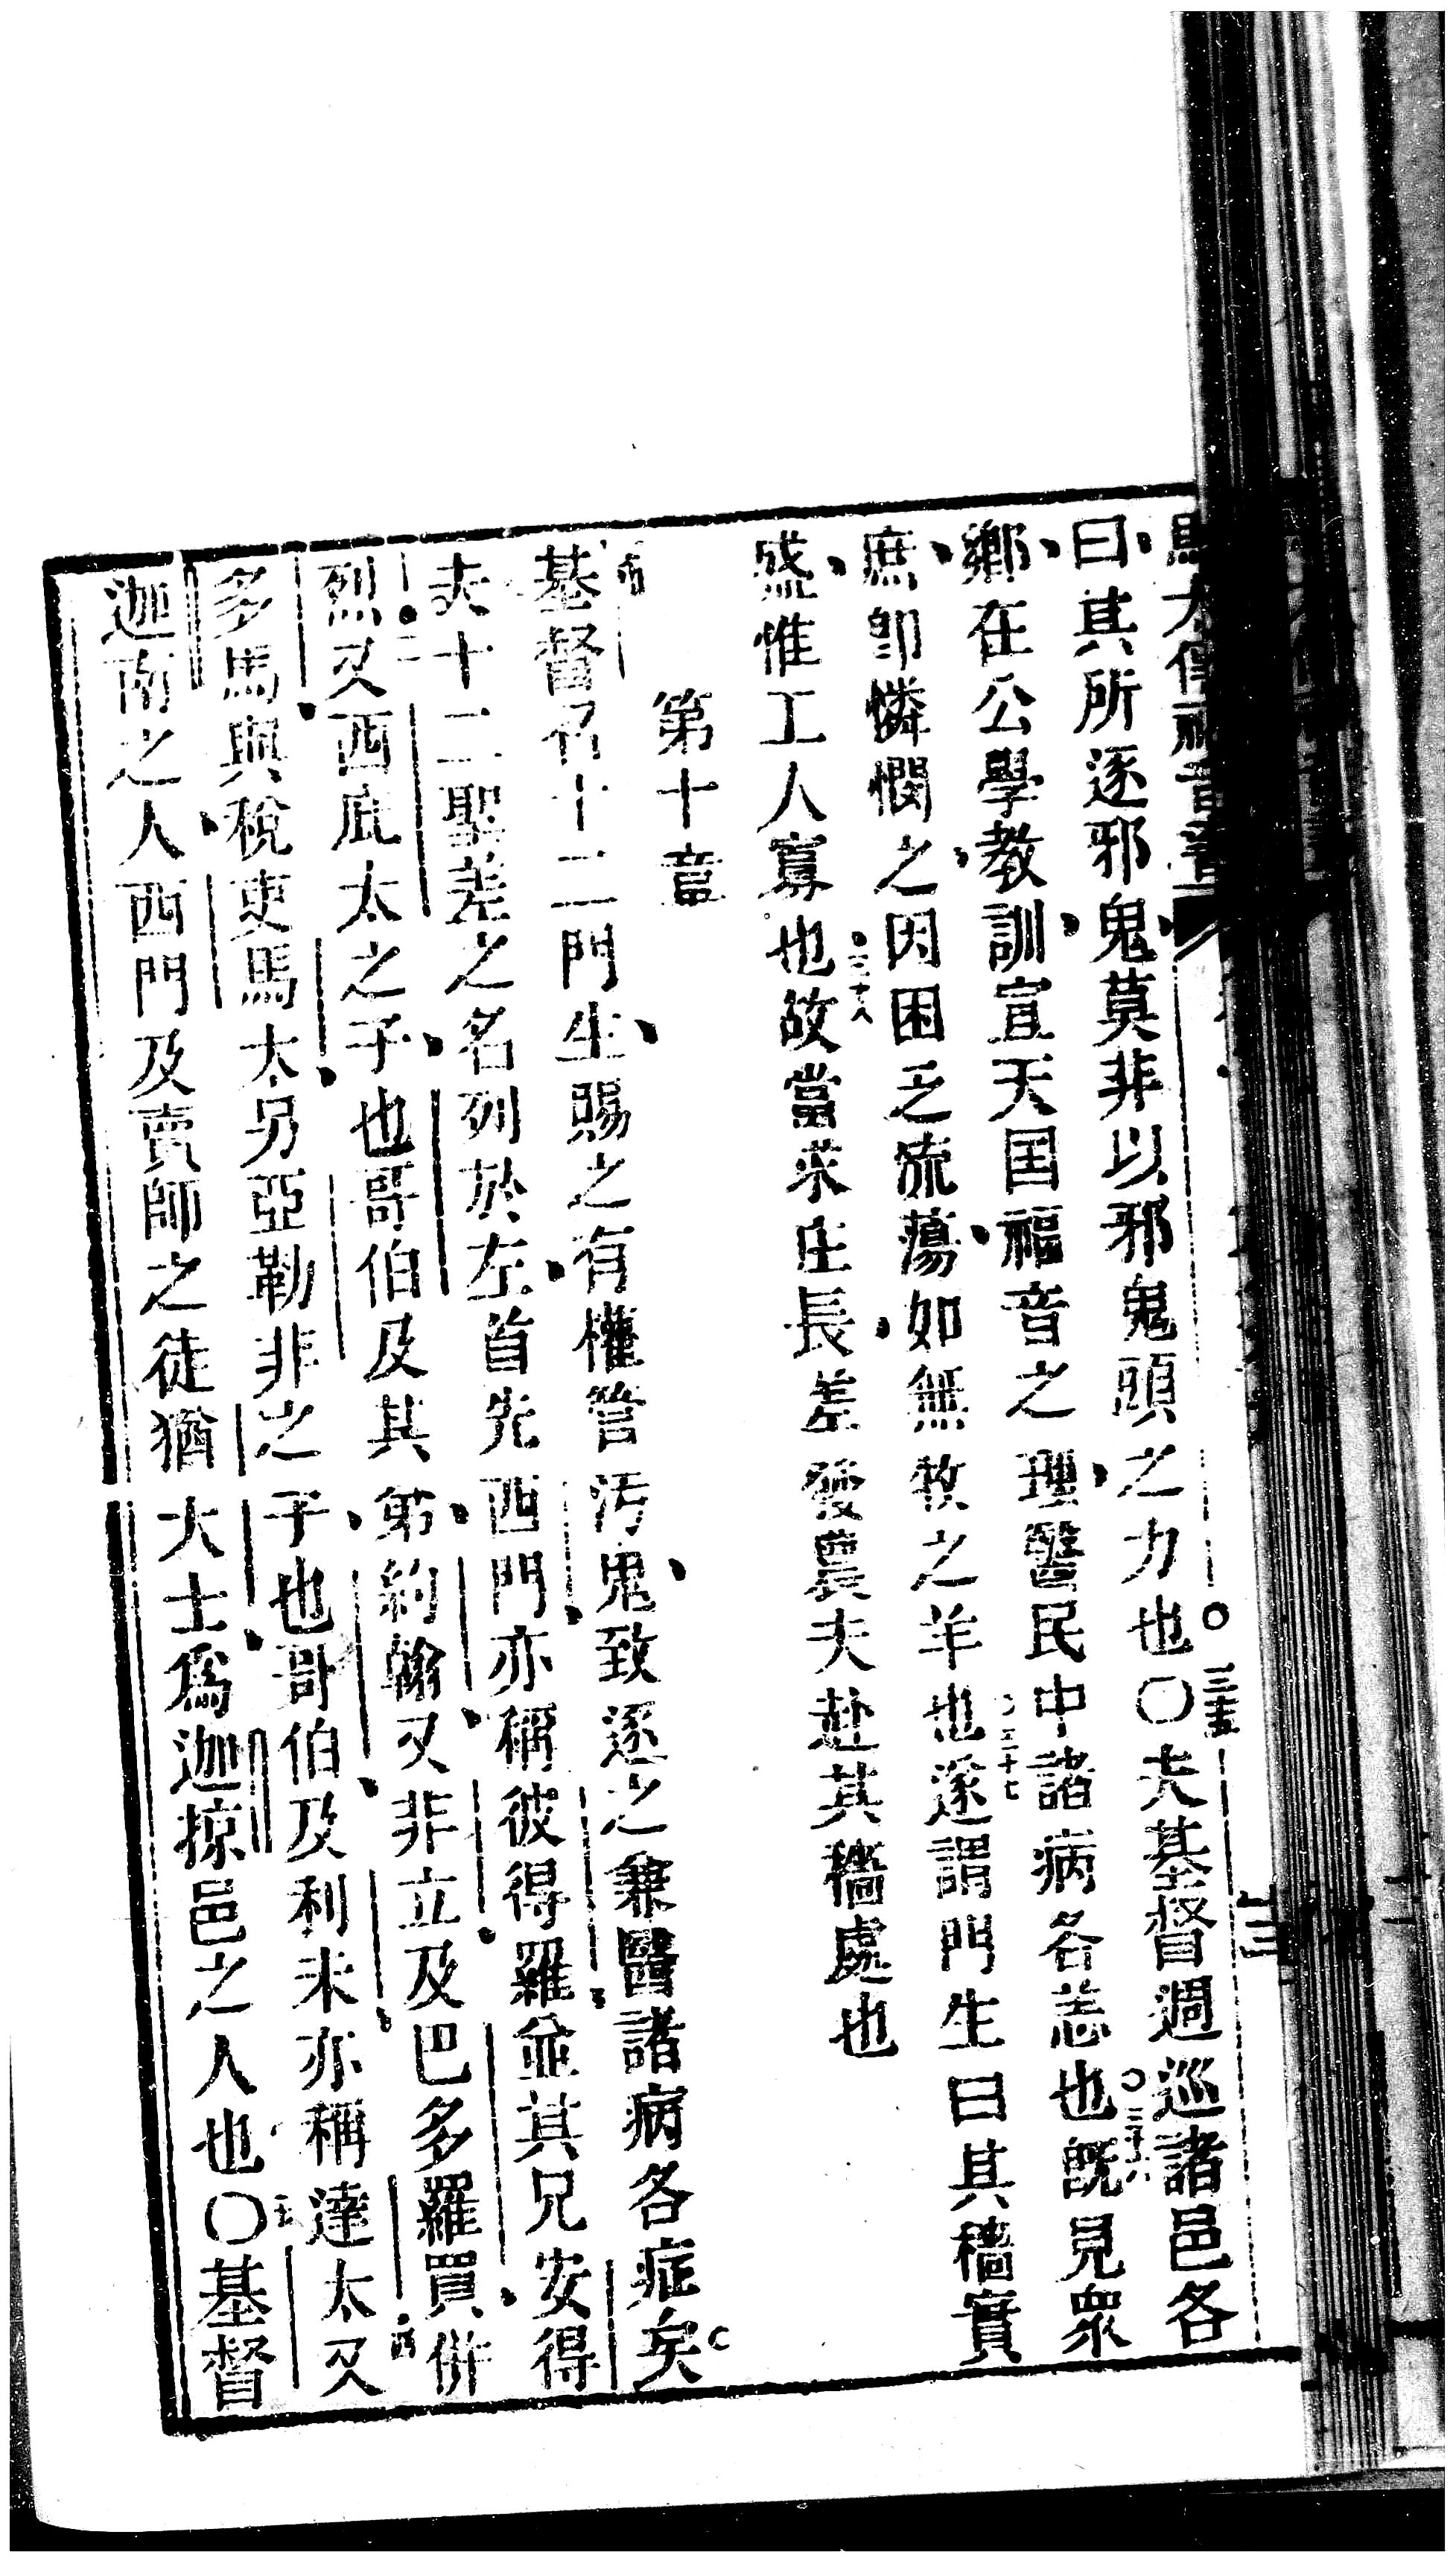 馬太傳福音書
曰其所逐邪鬼莫非以邪鬼頭之力也〇三十五夫基督週巡諸邑各
鄉在公學教訓宣天国福音之理醫民中諸病各恙也三十六既見衆
庶卽憐憫之因困乏流蕩如無牧之羊也三十七遂謂門生曰其穡實
盛惟工人寡也三十八故當求庄長差發農夫赴其穡處也
第十章
基督召十二門生賜之有權管汚鬼致逐之兼醫諸病各症矣
二夫十二聖差之名列於左首先西門亦稱彼得羅並其兄安得
烈又西庇太之子也哥伯及其弟約翰又非立及巴多羅買併
多馬與稅吏馬太另亞勒非之子也哥伯及利未亦稱達太又
迦南之人西門及賣師之徒猶大士爲迦掠邑之人也〇五基督